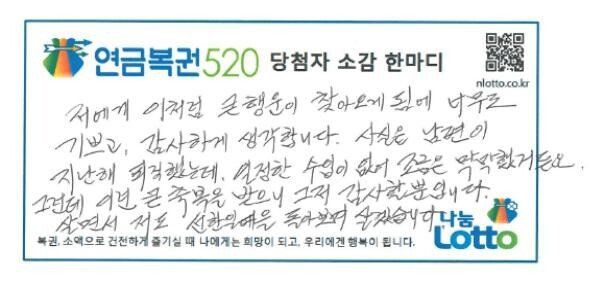 연금복권520 당첨자 소감 한마디
nlotto.co.kr
저에게 이처럼 큰 행운이 찾아오게 됨에 너무도
기쁘고, 감사하게 생각합니다. 사실은 남편이
지난해 퇴직했는데, 일정한 수입이 없어 조금은 막막했거든요.
그런데 이런 큰 축복을 받으니 그저 감사할뿐입니다.
살면서 저도 선한일에 살겠습니다
나눔
Lotto
복권, 소액으로 건전하게 즐기실 때 나에게는 희망이 되고, 우리에겐 행복이 됩니다.